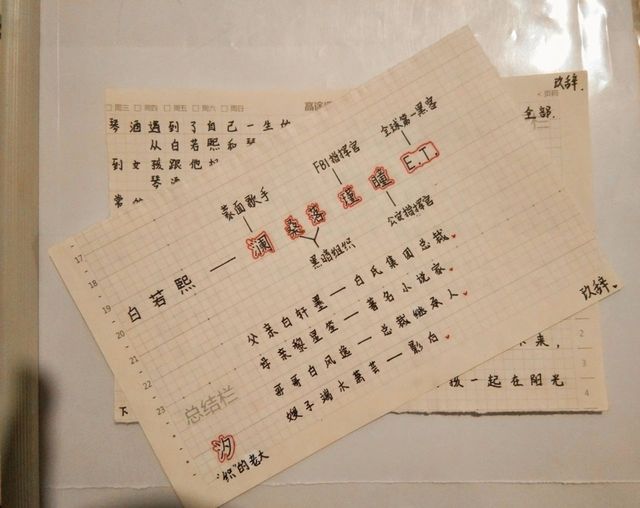 周三 周四 周五 周六 周日
玖辞.
全部.
琴酒遇到了自己一生的
从白若熙和
到女孩跟他
蒙面歌手
FBI指挥官
全球第一黑客
白若熙——澜 桑 落 瑾 瞳 E.T.
黑暗组织
公安指挥官
父亲白轩墨——白氏集团总裁
母亲黎星莹——著名小说家
哥哥白风逸——总裁继承人
嫂子端木菡芸——影后
玖辞.
17
18
19
20
21
22
23
总结栏
汐
"织"的老大
来,
孩一起在阳光
下
3
4